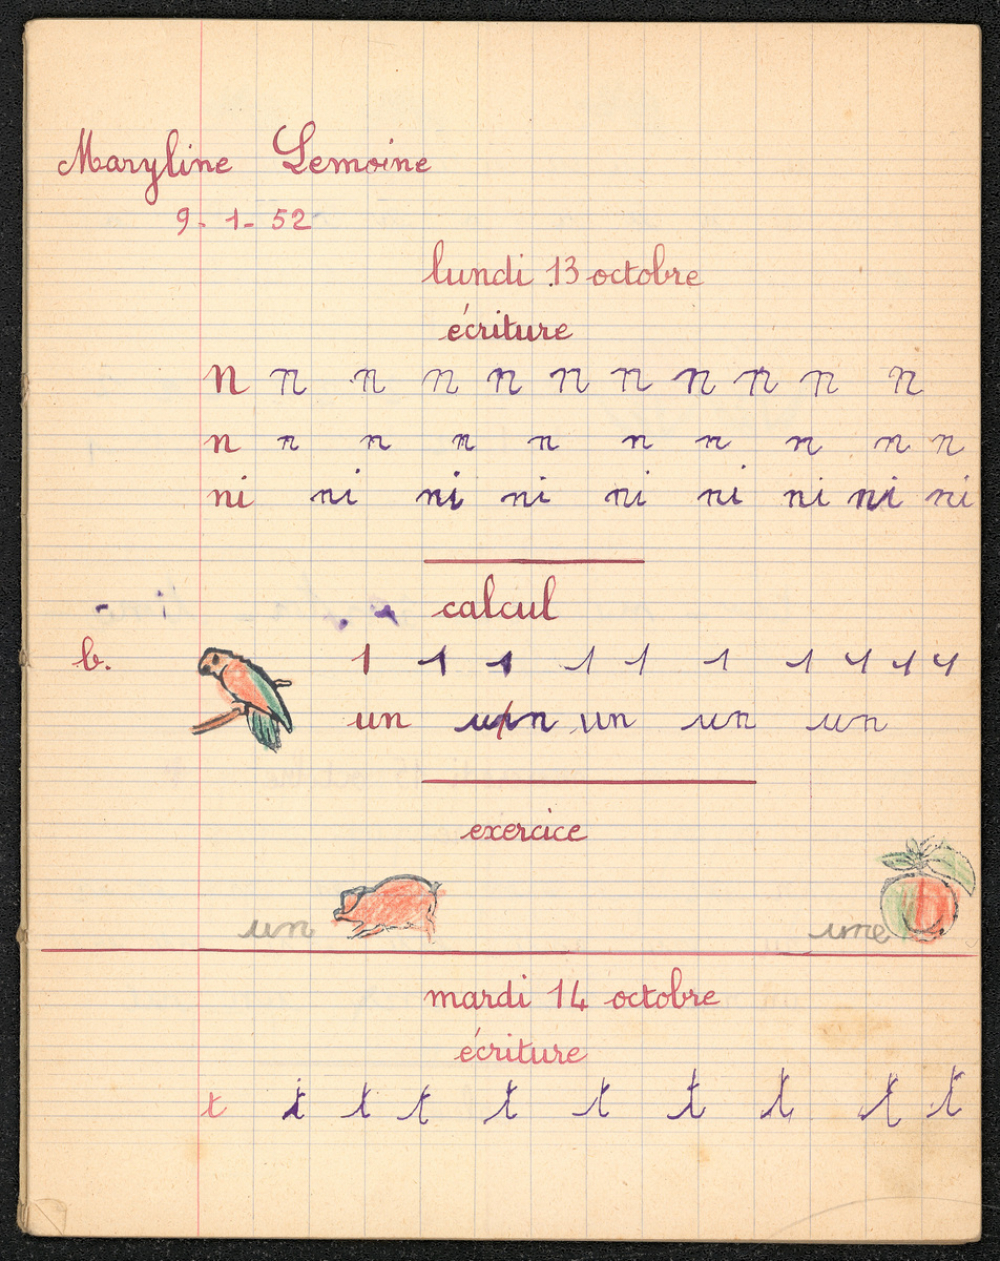 Maryline Lemoine
9-1-52
lundi 13 octobre
écriture
n n n n n n n n n n n
n n n n n n n n n n
ni ni ni ni ni ni ni ni ni
calcul
b. 1 1 1 1 1 1 1 1 1 1
un un un un un
exercice
un une
mardi 14 octobre
écriture
t t t t t t t t t t